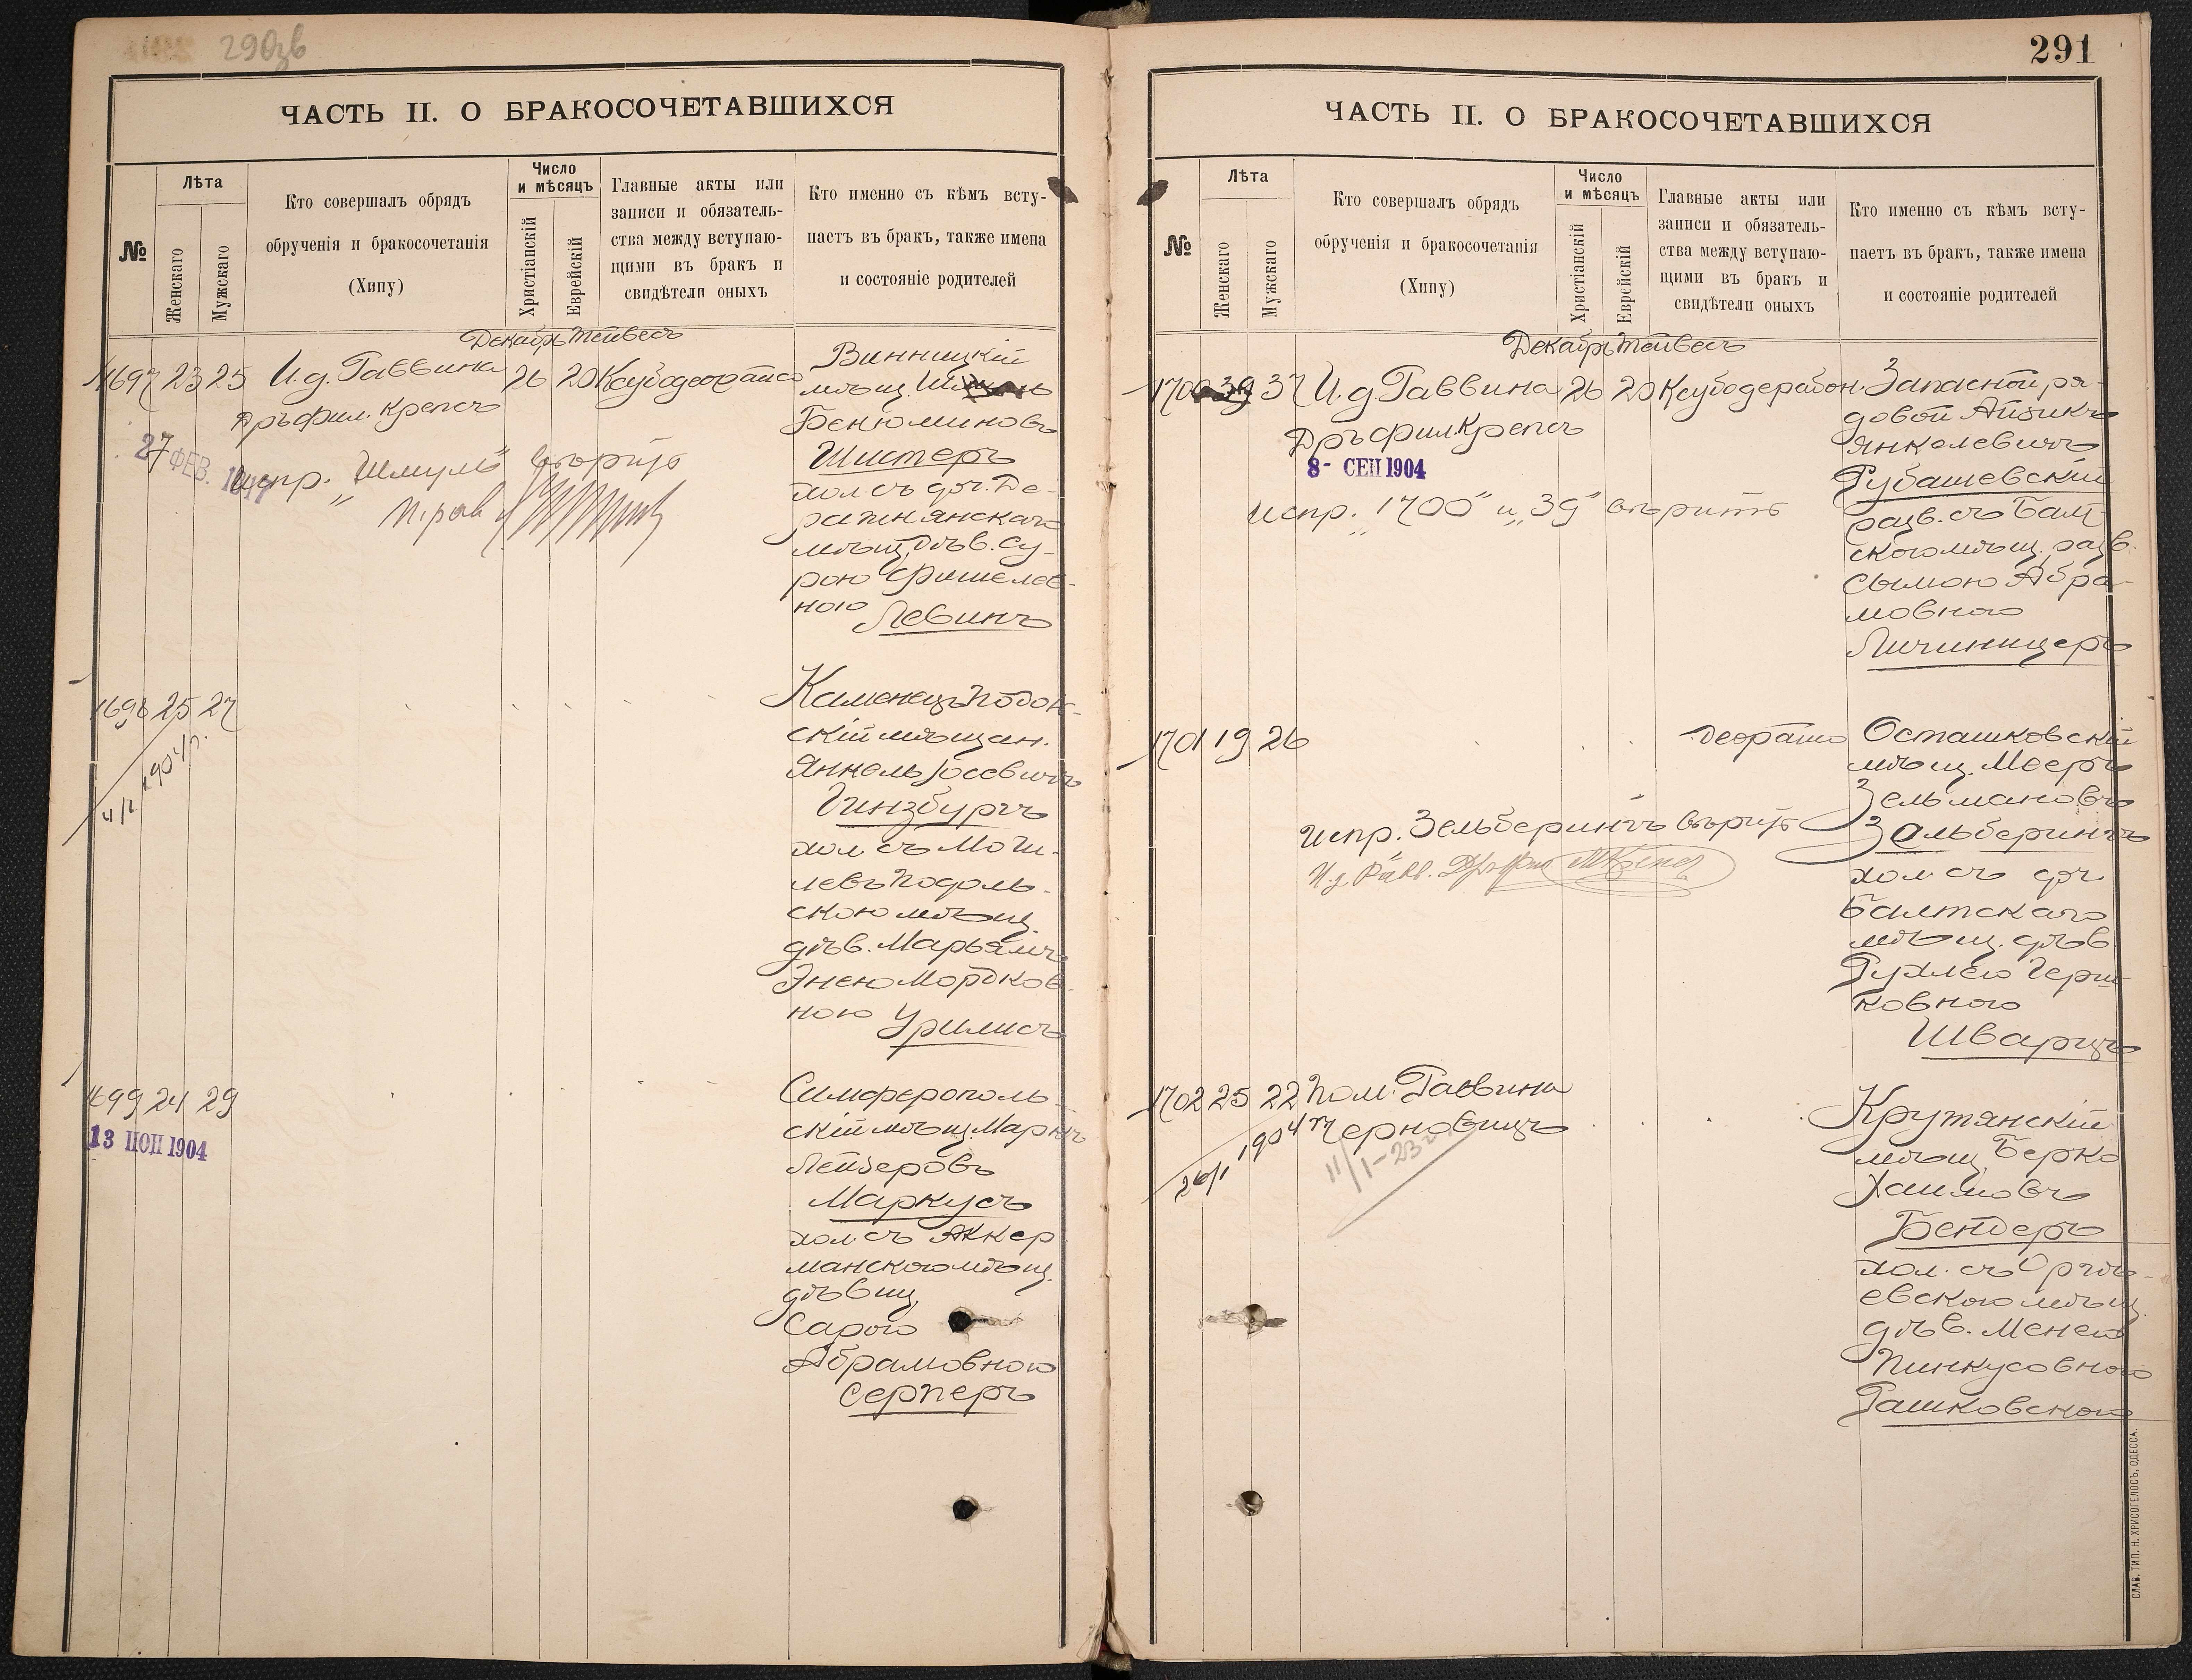 290зв
ЧАСТЬ II. О БРАКОСОЧЕТАВШИХСЯ
№
Лѣта
Женскаго
Мужскаго
Кто совершалъ обрядъ
обрученія и бракосочетанія
(Хипу)
Число
и мѣсяцъ
Христіанскій
Еврейскій
Главные акты или
записи и обязатель-
ства между вступаю-
щими въ бракъ и
свидѣтели оныхъ
Кто именно съ кѣмъ всту-
паетъ въ бракъ, также имена
и состояніе родителей
Декабрь Тейвесъ
1697 23 25 И.д. Раввина 26 20
Дръ фил. Крепсъ
27 ФЕВ.
испр. "Шмуль" вѣрить
Винницкій
мѣщ.
Бенюминовъ
Шистеръ
хол. съ доч. Де-
ражнянскаго
мѣщ. дѣв. Су-
рою Фишелев-
ною Левинъ
1698 25 27
4/2 1904 г.
Каменецъ Подол-
скій мѣщан.
Янкель Іосевичъ
Гинзбургъ
хол. съ Моги-
левъ Подоль-
скою мѣщ.
дѣв. Марьямъ
Энею Мордков-
ною Урилисъ
1699 24 29
13 ІЮН 1904
Симферополь-
скій мѣщ. Маркъ
Лейзеровъ
Маркусъ
хол. съ Аккер
манскою мѣщ.
дѣвиц.
Сарою
Абрамовною
Серперъ
291
ЧАСТЬ II. О БРАКОСОЧЕТАВШИХСЯ
№
Лѣта
Женскаго
Мужскаго
Кто совершалъ обрядъ
обрученія и бракосочетанія
(Хипу)
Число
и мѣсяцъ
Христіанскій
Еврейскій
Главные акты или
записи и обязатель-
ства между вступаю-
щими въ бракъ и
свидѣтели оныхъ
Кто именно съ кѣмъ всту-
паетъ въ бракъ, также имена
и состояніе родителей
Декабрь Тейвесъ
1700 39 37 И.д. Раввина 26 20
Дръ фил. Крепсъ
8- СЕП 1904
испр. "1700" и "39" вѣрить
Запасной ря-
довой Айзикъ
Янкелевичъ
Рубашевскій
разв. съ Балт-
скою мѣщ. разв.
Сымою Абра-
мовною
Личиницеръ
1701 19 26 деораісо
испр. Зельберингъ вѣрить
И.д. Равв. Дръ фил. МКрепсъ
Осташковскій
мѣщ. Мееръ
Зельмановъ
Зельберингъ
хол. съ доч.
Балтскаго
мѣщ. дѣв.
Рухлею Герш-
ковною
Шварцъ
1702 25 22 Пом. Раввина
Черновицъ
26/1 1904 г.
11/I-23 г.
Крутянскій
мѣщ. Берко
Хаимовъ
Бендеръ
хол. съ Оргѣ-
евскою мѣщ.
дѣв. Менею
Пинкусовною
Рашковскою
СЛАВ. ТИП. Н. ХРИСОГЕЛОСЪ, ОДЕССА.